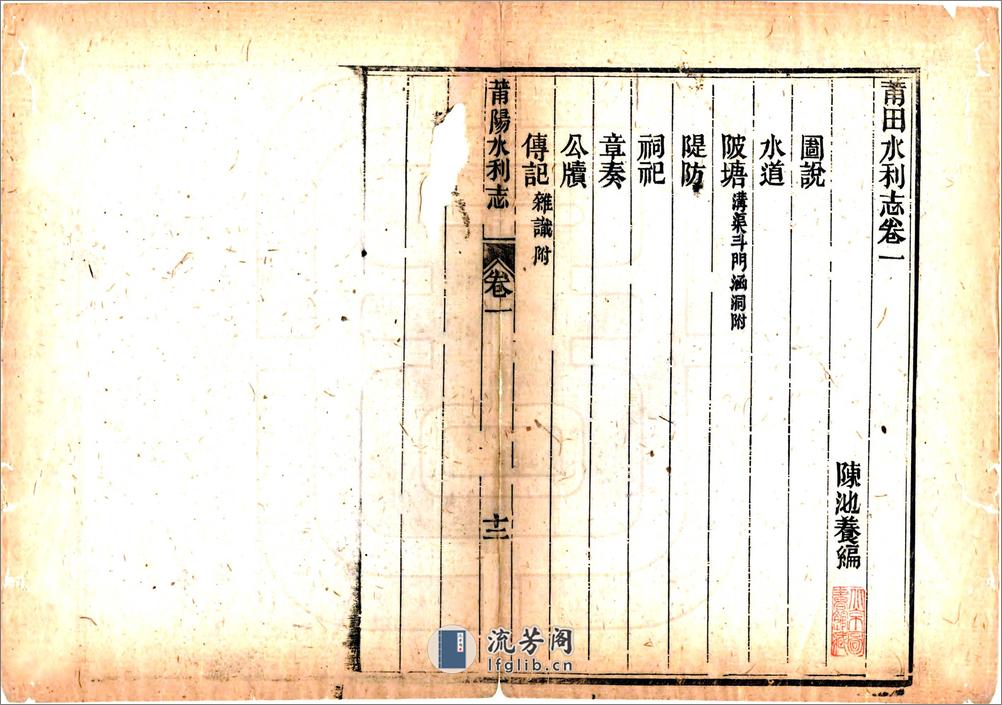 莆田水利志卷一
陳池養編
圖說
水道
陂塘溝渠斗門涵洞附
隄防
祠祀
章奏
公牘
傳記雜識附
莆陽水利志
卷一
十二
流芳阁
lfglib.cn